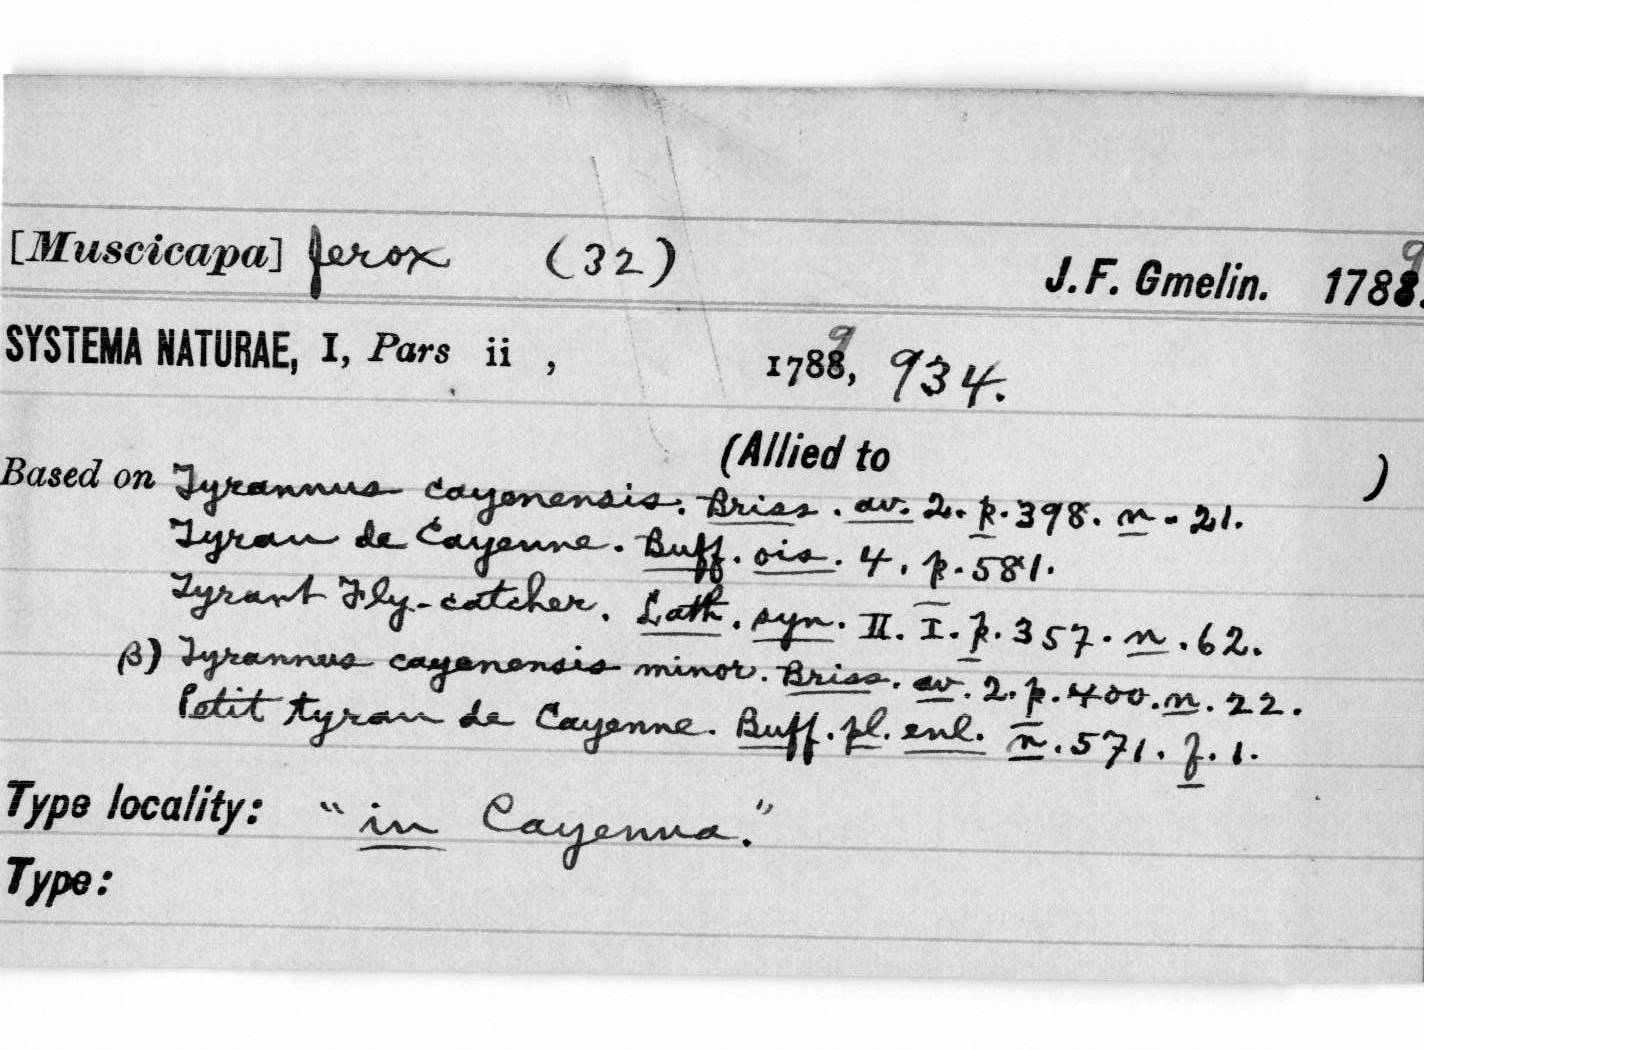 [Muscicapa] ferox (32) J. F. Gmelin. 1789.
SYSTEMA NATURAE, I, Pars ii , 1789, 934.
(Allied to )
Based on Tyrannus cayenensis. Briss. av. 2. p. 398. n. 21.
Tyran de Cayenne. Buff. ois. 4. p. 581.
Tyrant Fly-catcher. Lath. syn. II. I. p. 357. n. 62.
β) Tyrannus cayenensis minor. Briss. av. 2. p. 400. n. 22.
Petit tyran de Cayenne. Buff. pl. enl. n. 571. f. 1.
Type locality: "in Cayenna."
Type: